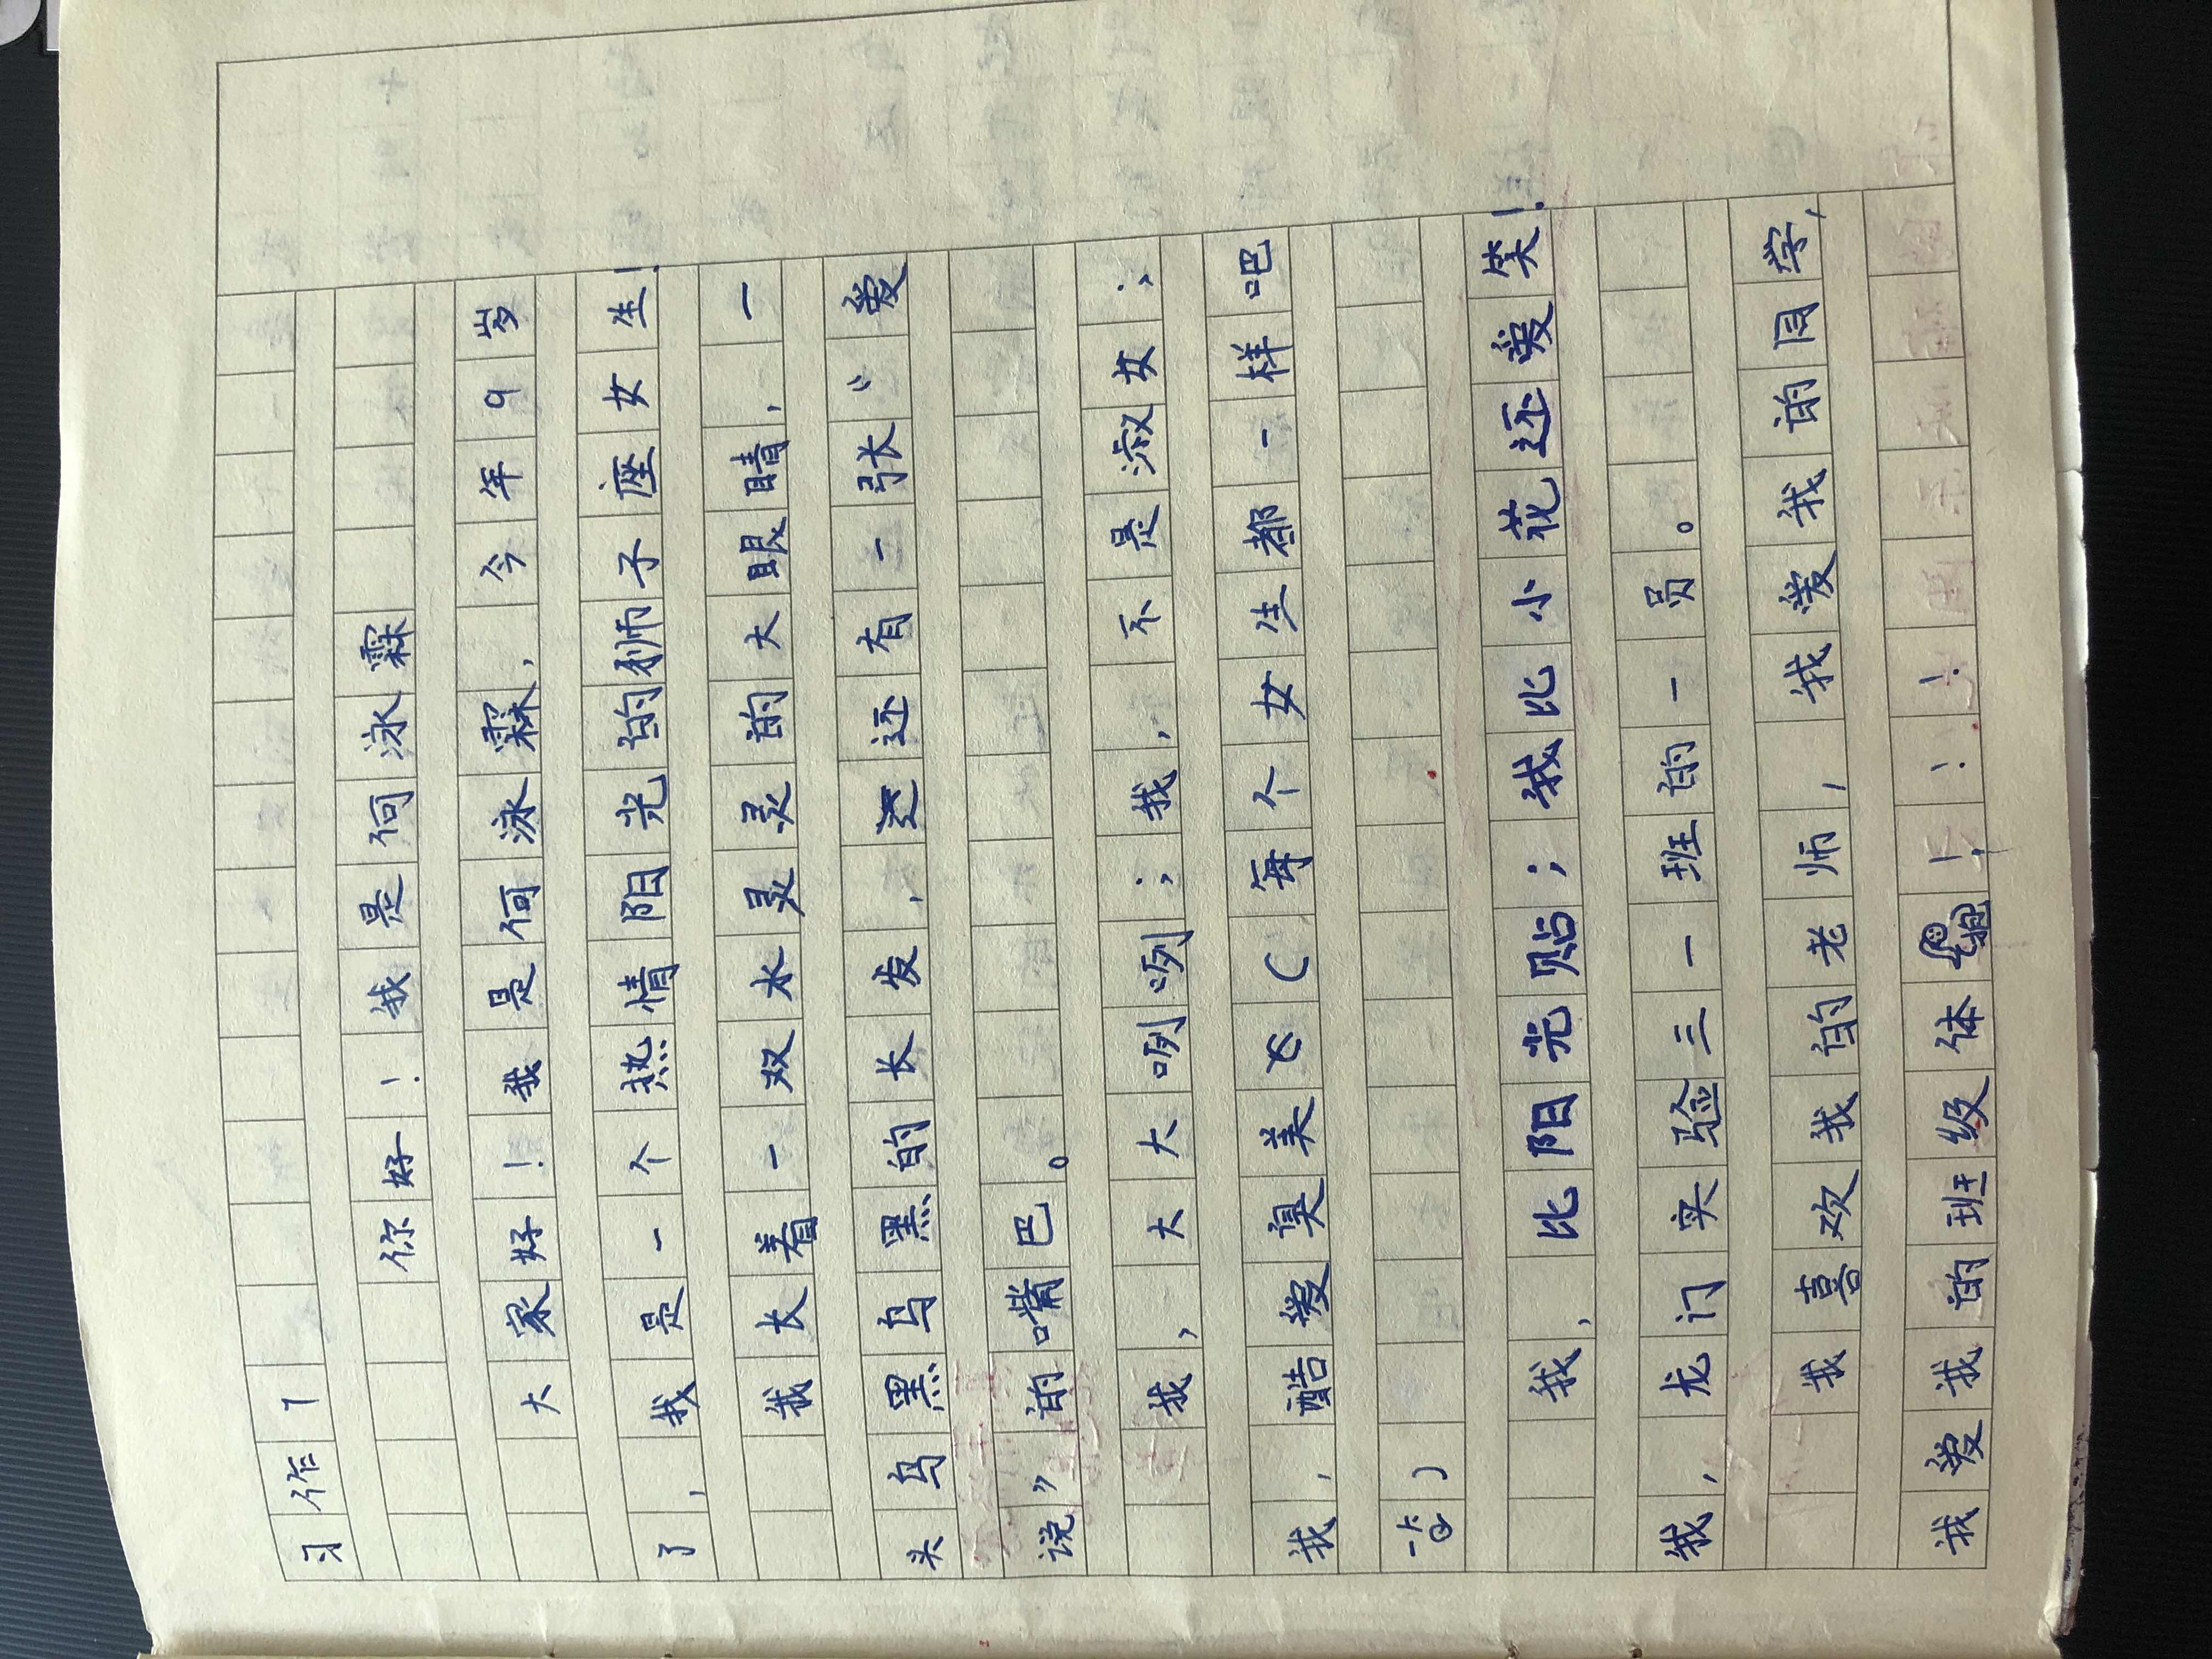 习作1
你好！我是何泳霖
大家好！我是何泳霖，今年9岁
了，我是一个热情阳光的狮子座女生！
我长着一双水灵灵的大眼睛，一
头乌黑乌黑的长发，还有一张“爱
说”的嘴巴。
我，大大咧咧；我，不是淑女；
我，酷爱臭美（每个女生都一样吧
）
我，比阳光贴；我比小花还爱笑！
我，龙门实验三一班的一员。
我喜欢我的老师，我爱我的同学，
我爱我的班级体！！！